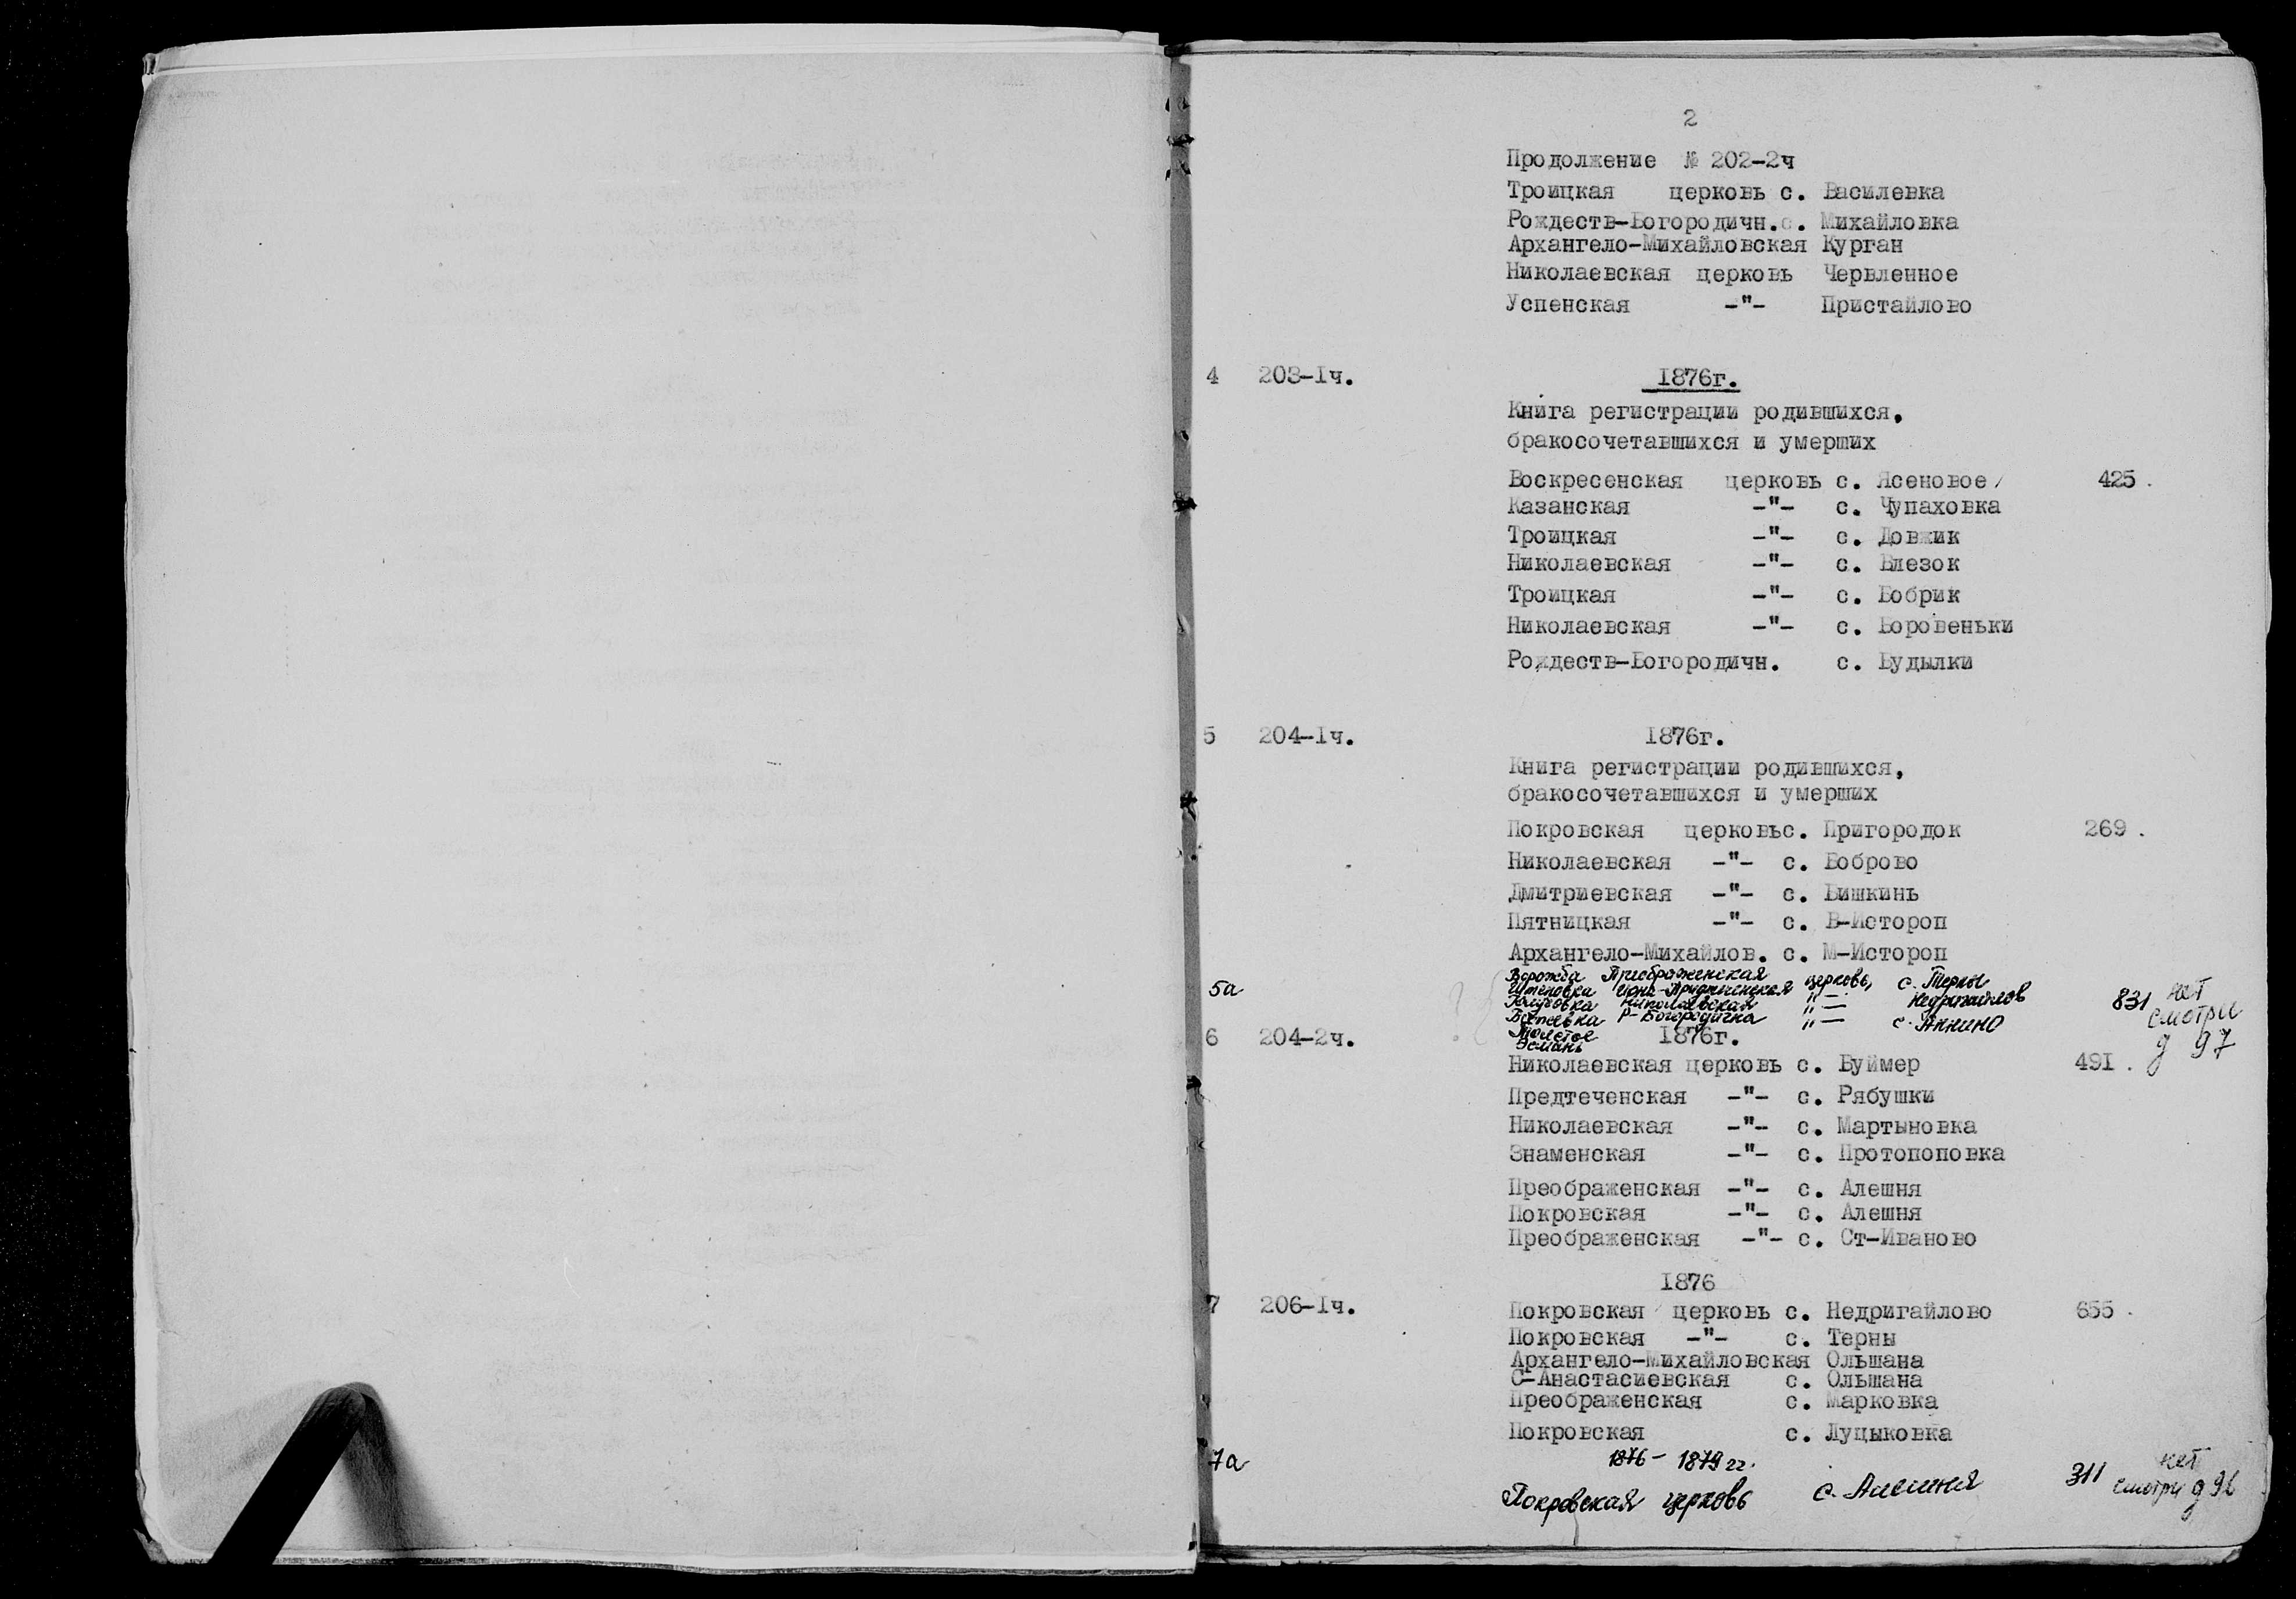 2
Продолжение № 202-2ч
Троицкая церковь с. Василевка
Рождеств-Богородичн.с. Михайловка
Архангело-Михайловская Курган
Николаевская церковь Червленное
Успенская -"- Пристайлово
4 203-1ч. 1876г.
Книга регистрации родившихся,
бракосочетавшихся и умерших
Воскресенская церковь с. Ясеновое 425.
Казанская -"- с. Чупаховка
Троицкая -"- с. Довжик
Николаевская -"- с. Влезок
Троицкая -"- с. Бобрик
Николаевская -"- с. Боровеньки
Рождеств-Богородичн. с. Будылки
5 204-1ч. 1876г.
Книга регистрации родившихся,
бракосочетавшихся и умерших
Покровская церковьс. Пригородок 269.
Николаевская -"- с. Боброво
Дмитриевская -"- с. Бишкинь
Пятницкая -"- с. В-Истороп
Архангело-Михайлов. с. М-Истороп
Ворожба Преображенская церковь, с. Терны
5а Иоано-Предтеченская "— Недригайлов 831 нет
Николаевская "— с. Аннино смотри
Р-Богородична д 97
Толстое
Эсмань
6 204-2ч. 1876г.
Николаевская церковь с. Буймер 491.
Предтеченская -"- с. Рябушки
Николаевская -"- с. Мартыновка
Знаменская -"- с. Протопоповка
Преображенская -"- с. Алешня
Покровская -"- с. Алешня
Преображенская -"- с. Ст-Иваново
1876
7 206-1ч. Покровская церковь с. Недригайлово 655.
Покровская -"- с. Терны
Архангело-Михайловская Ольшана
С-Анастасиевская с. Ольшана
Преображенская с. Марковка
Покровская с. Луцыковка
7а 1876-1879 гг.
Покровская церковь с. Алешня 311 нет
смотри д 96